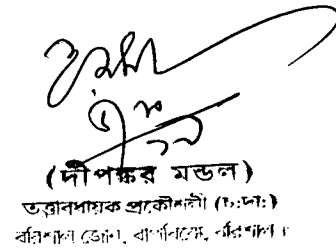 (দীপঙ্কর মন্ডল)
তত্ত্বাবধায়ক প্রকৌশলী (চ:দা:)
বরিশাল জোন, বাপবিবো, বরিশাল।